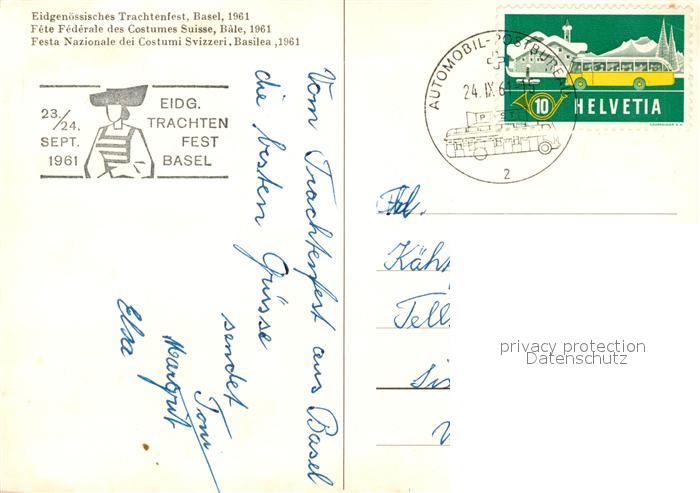 Eidgenössisches Trachtenfest, Basel, 1961
Fête Fédérale des Costumes Suisse, Bâle, 1961
Festa Nazionale dei Costumi Svizzeri, Basilea ,1961
23./24.
SEPT.
1961
EIDG.
TRACHTEN
FEST
BASEL
Vom Trachtenfest aus Basel
die besten Grüsse
sendet
Toni
Margrit
Elsa
AUTOMOBIL-POSTBUREAU
24.IX.61-15
2
10 HELVETIA
Käh
Tell
privacy protection
Datenschutz